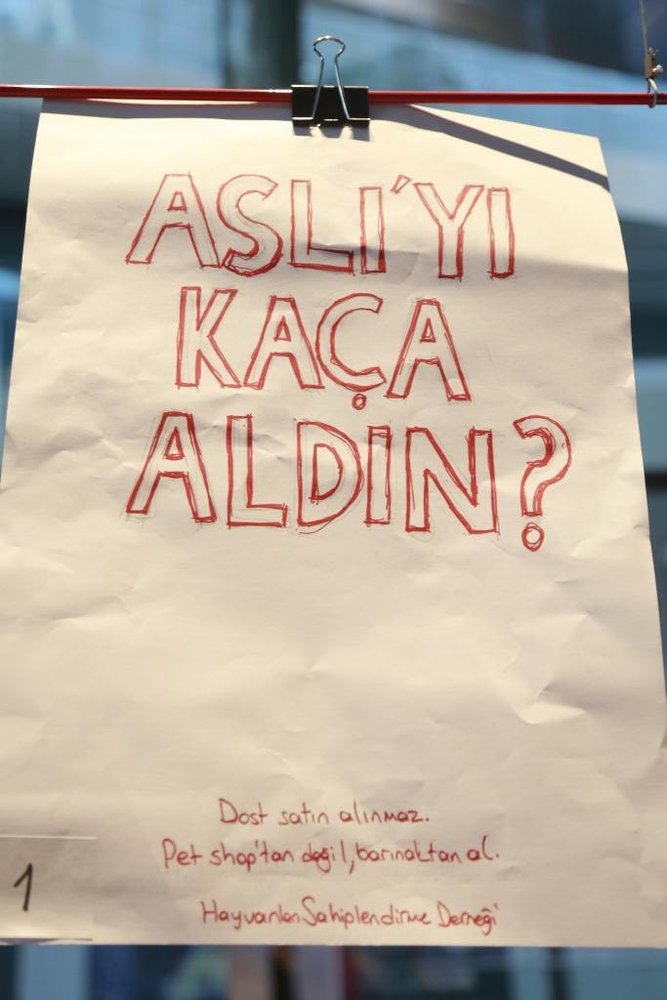 ASLI'YI
KAÇA
ALDIN?
Dost satın alınmaz.
Pet shop'tan değil, barınaktan al.
Hayvanları Sahiplendirme Derneği
1